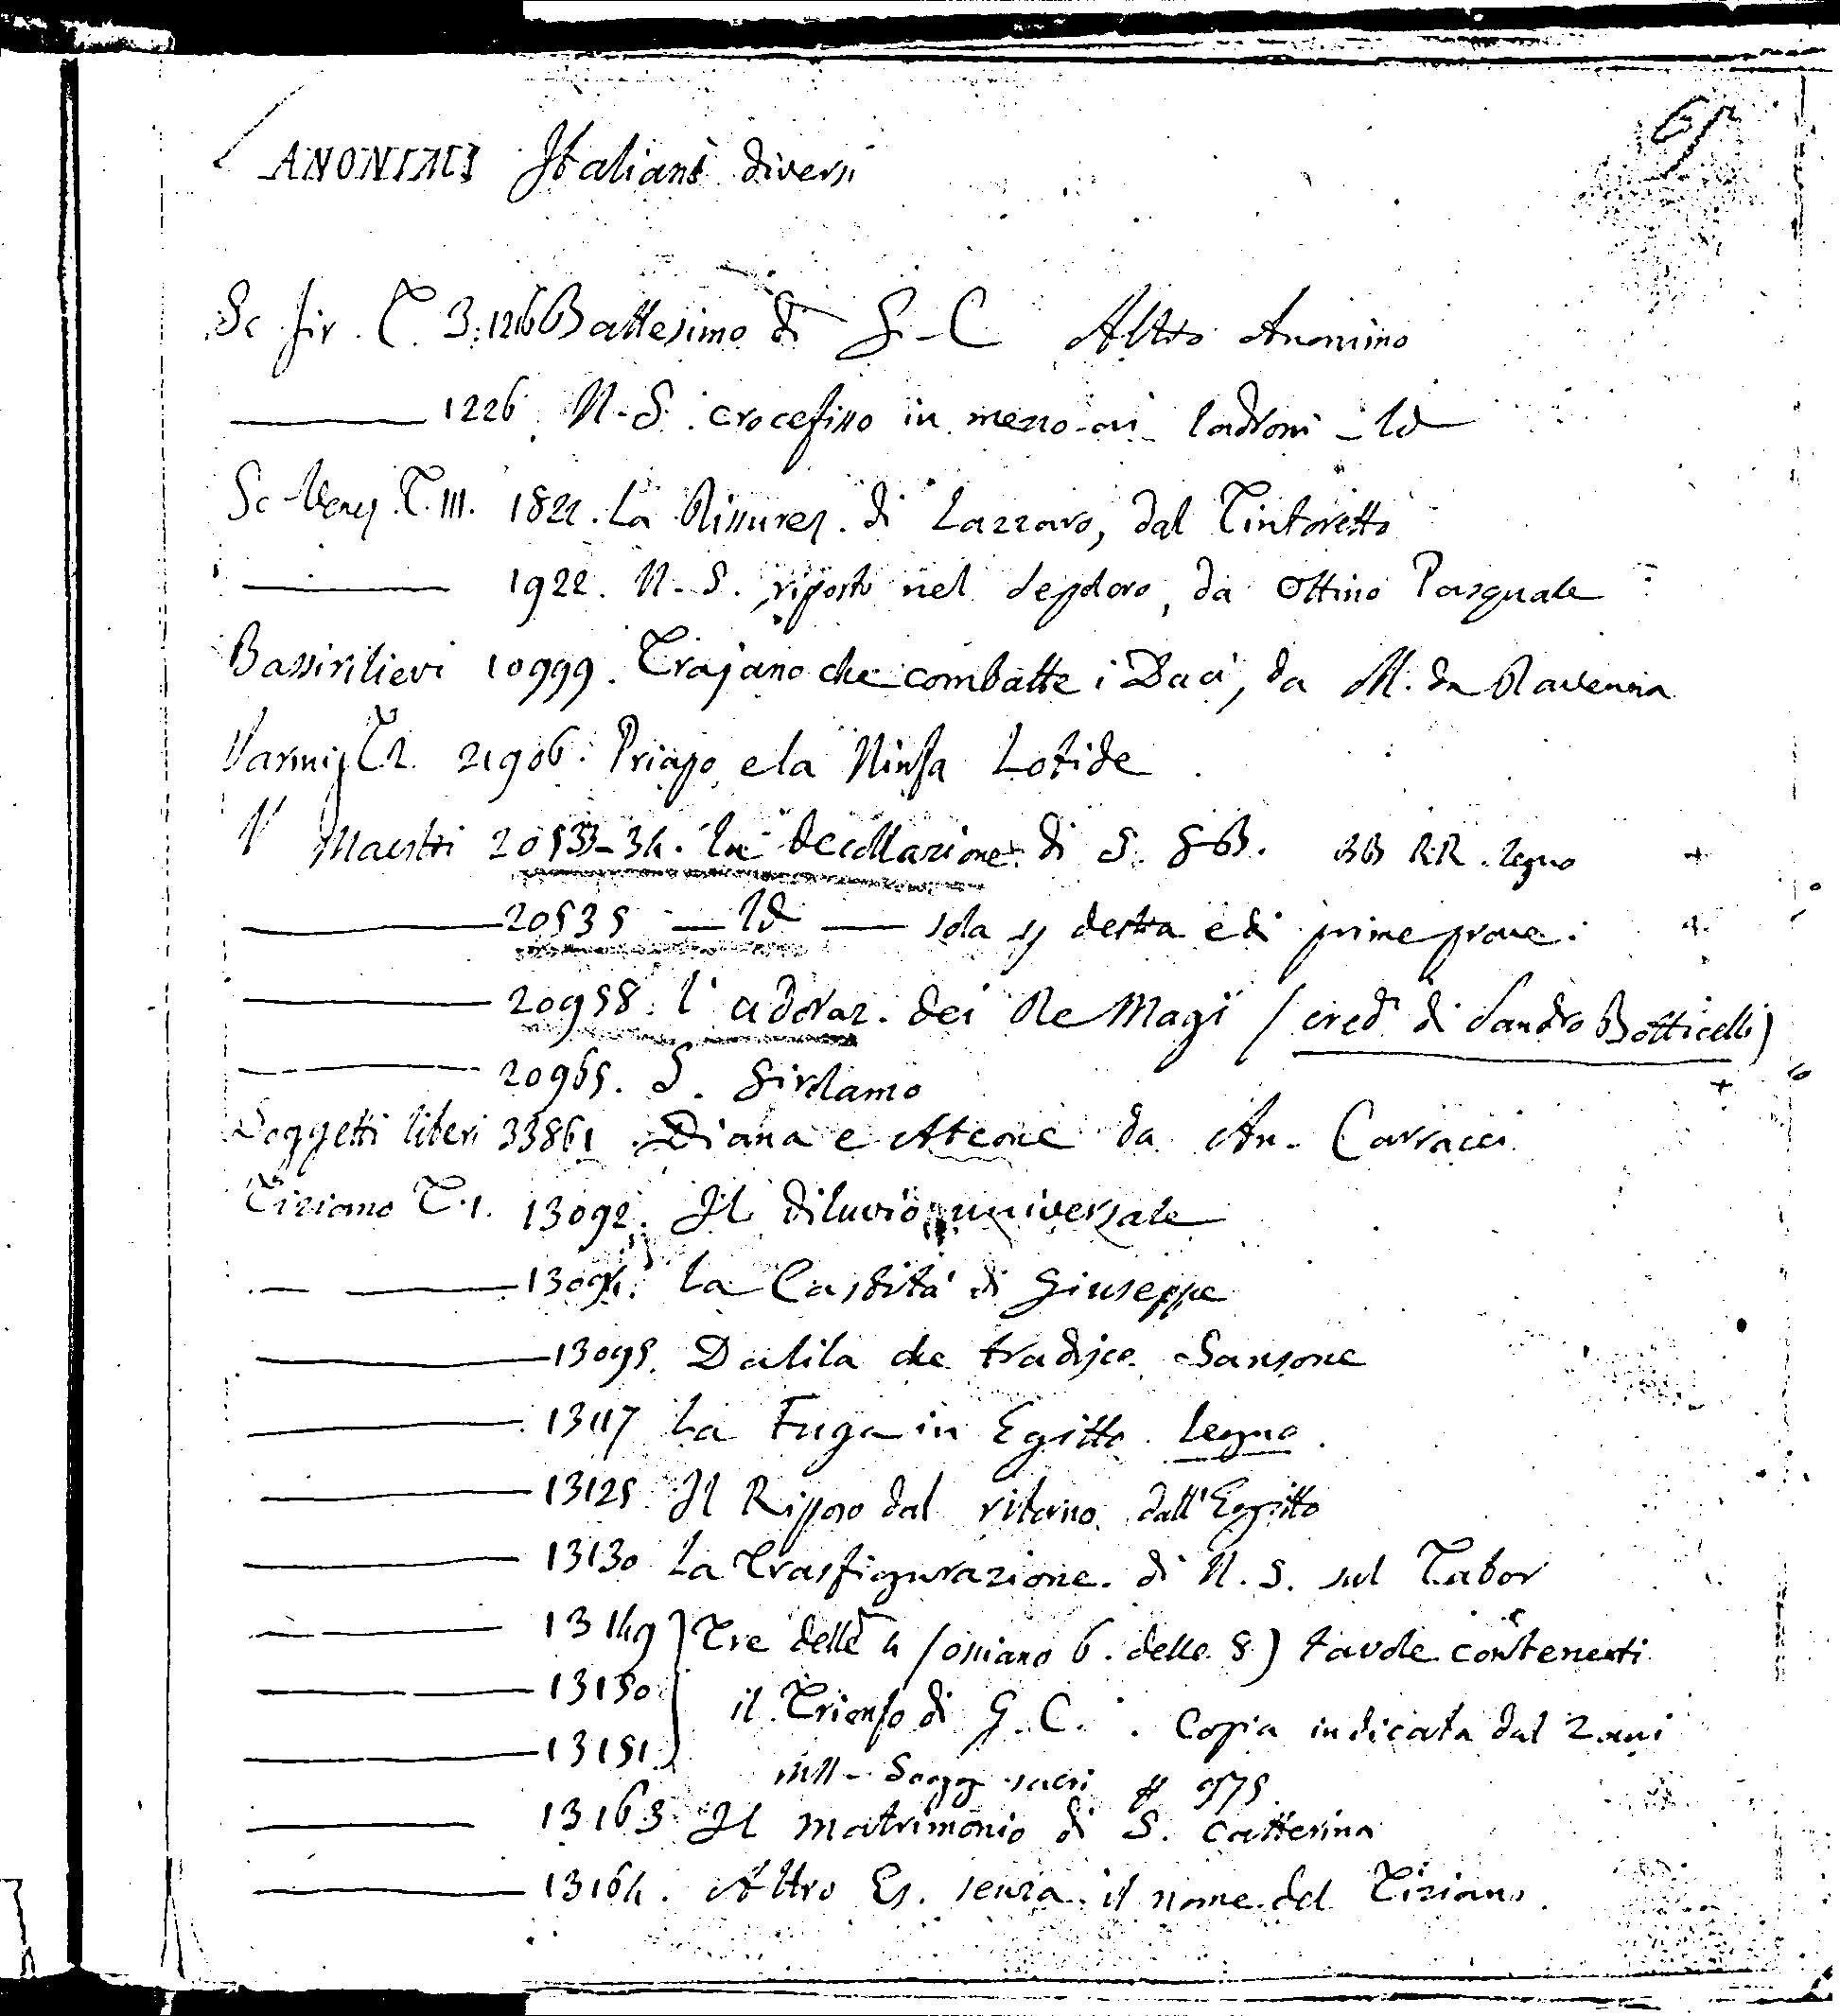 ANONIMI Italiani diversi
Sc fir. T. 3. 1216 Battesimo di G-C Altro Anonimo
1226. N-S. crocefisso in mezzo ai ladroni - Id
Sc Venez. T. III. 1822. La Rissurez. di Lazzaro, dal Tintoretto
1922. N-S. riposto nel sepolcro, da Ottino Pasquale
Bassirilievi 10999. Trajano che combatte i Daci, da M. da Ravenna
Parmig. T2. 21906. Priapo e la Ninfa Lotide
V Maestri 20533-34. La decollazione di S. GB. BB RR. legno +
20535 — Id — sola destra e di prime prove. +
20958. l'adoraz. dei Re Magi (cred. di Sandro Botticelli)
20965. S. Girolamo +
Soggetti liberi 33861. Diana e Ateone da An. Carracci
Tiziano T.1. 13092. Il diluvio universale
13094. La Castità di Giuseppe
13095. Dalila che tradisce Sansone
13117 La Fuga in Egitto. legno.
13125 Il Riposo dal ritorno dall'Egitto
13130 La Trasfigurazione di N.S. sul Tabor
13149 Tre delle 4 (ossiano 6. delle 8) tavole contenenti
13150 il Trionfo di G.C. . Copia indicata dal Zani
13151 Sogg. sacri 975
13163 Il matrimonio di S. Catterina
13164. Altro Es. senza il nome del Tiziano.